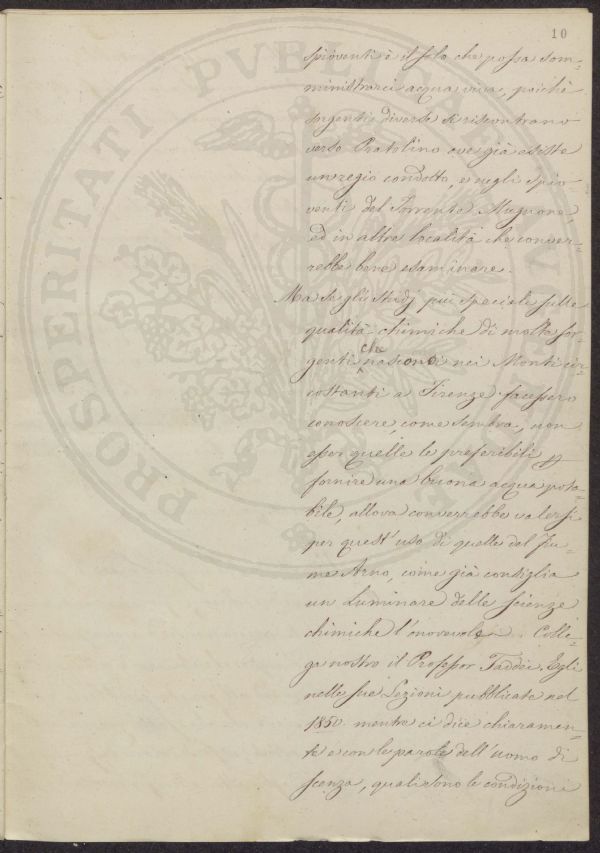 10
spioventi è il solo che possa som=
ministrarci acqua viva, poichè
sorgenti diverse si riscontrano
verso Pratolino ove già esiste
un regio condotto, e negli spio=
venti del Torrente Mugnone,
ed in altre località che conver=
rebbe bene esaminare.
Ma se gli studj più speciali sulle
qualità chimiche di molte sor=
che
genti nascono nei Monti cir=
costanti a Firenze facessero
conoscere, come sembra, non
esser quelle le preferibili p
fornire una buona acqua pota=
bile, allora converrebbe valersi
per quest'uso di quelle del Fiu=
me Arno, come già consiglia
un Luminare delle scienze
chimiche l'onorevole. Colle=
ga nostro il Professor Taddei. Egli
nelle sue Lezioni pubblicate nel
1850. mentre ci dice chiaramen=
te e con le parole dell'uomo di
scenza, quali sono le condizioni
PROSPERITATI PVBLICAE